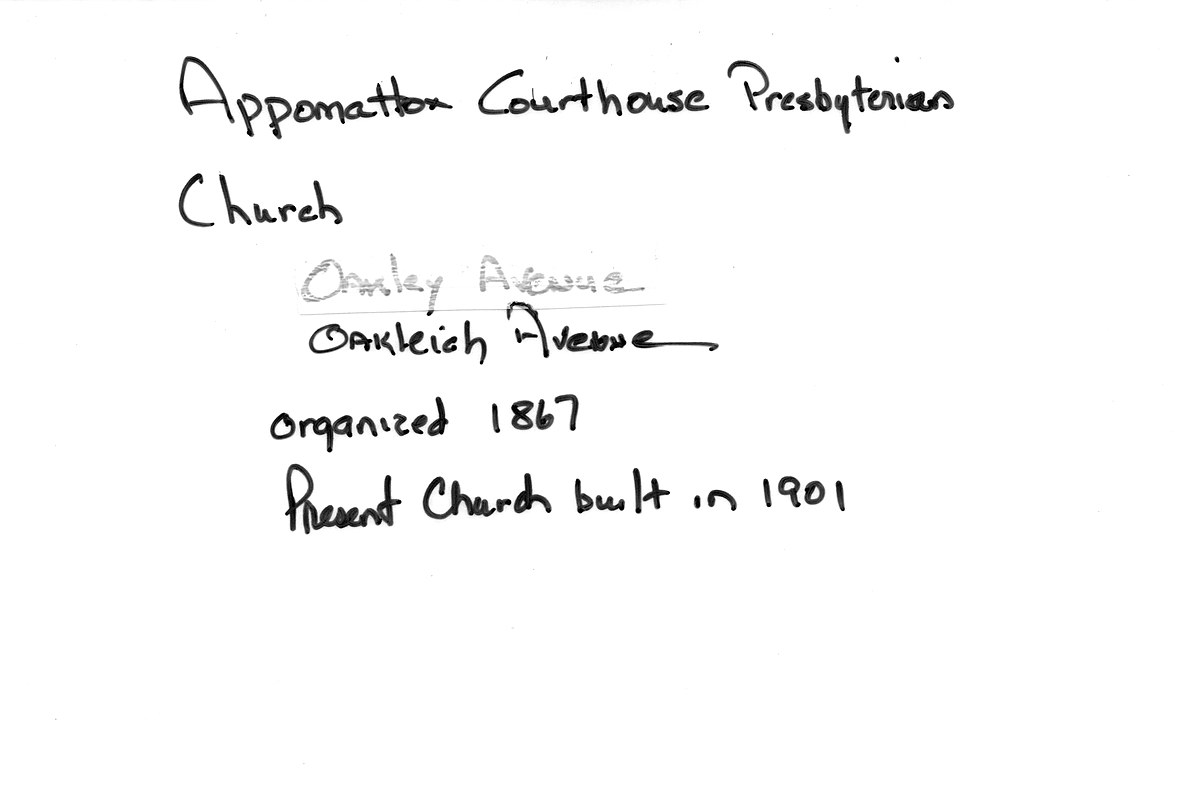 Appomattox Courthouse Presbyterian
Church
Oakley Avenue
Oakleigh Avenue
organized 1867
Present Church built in 1901